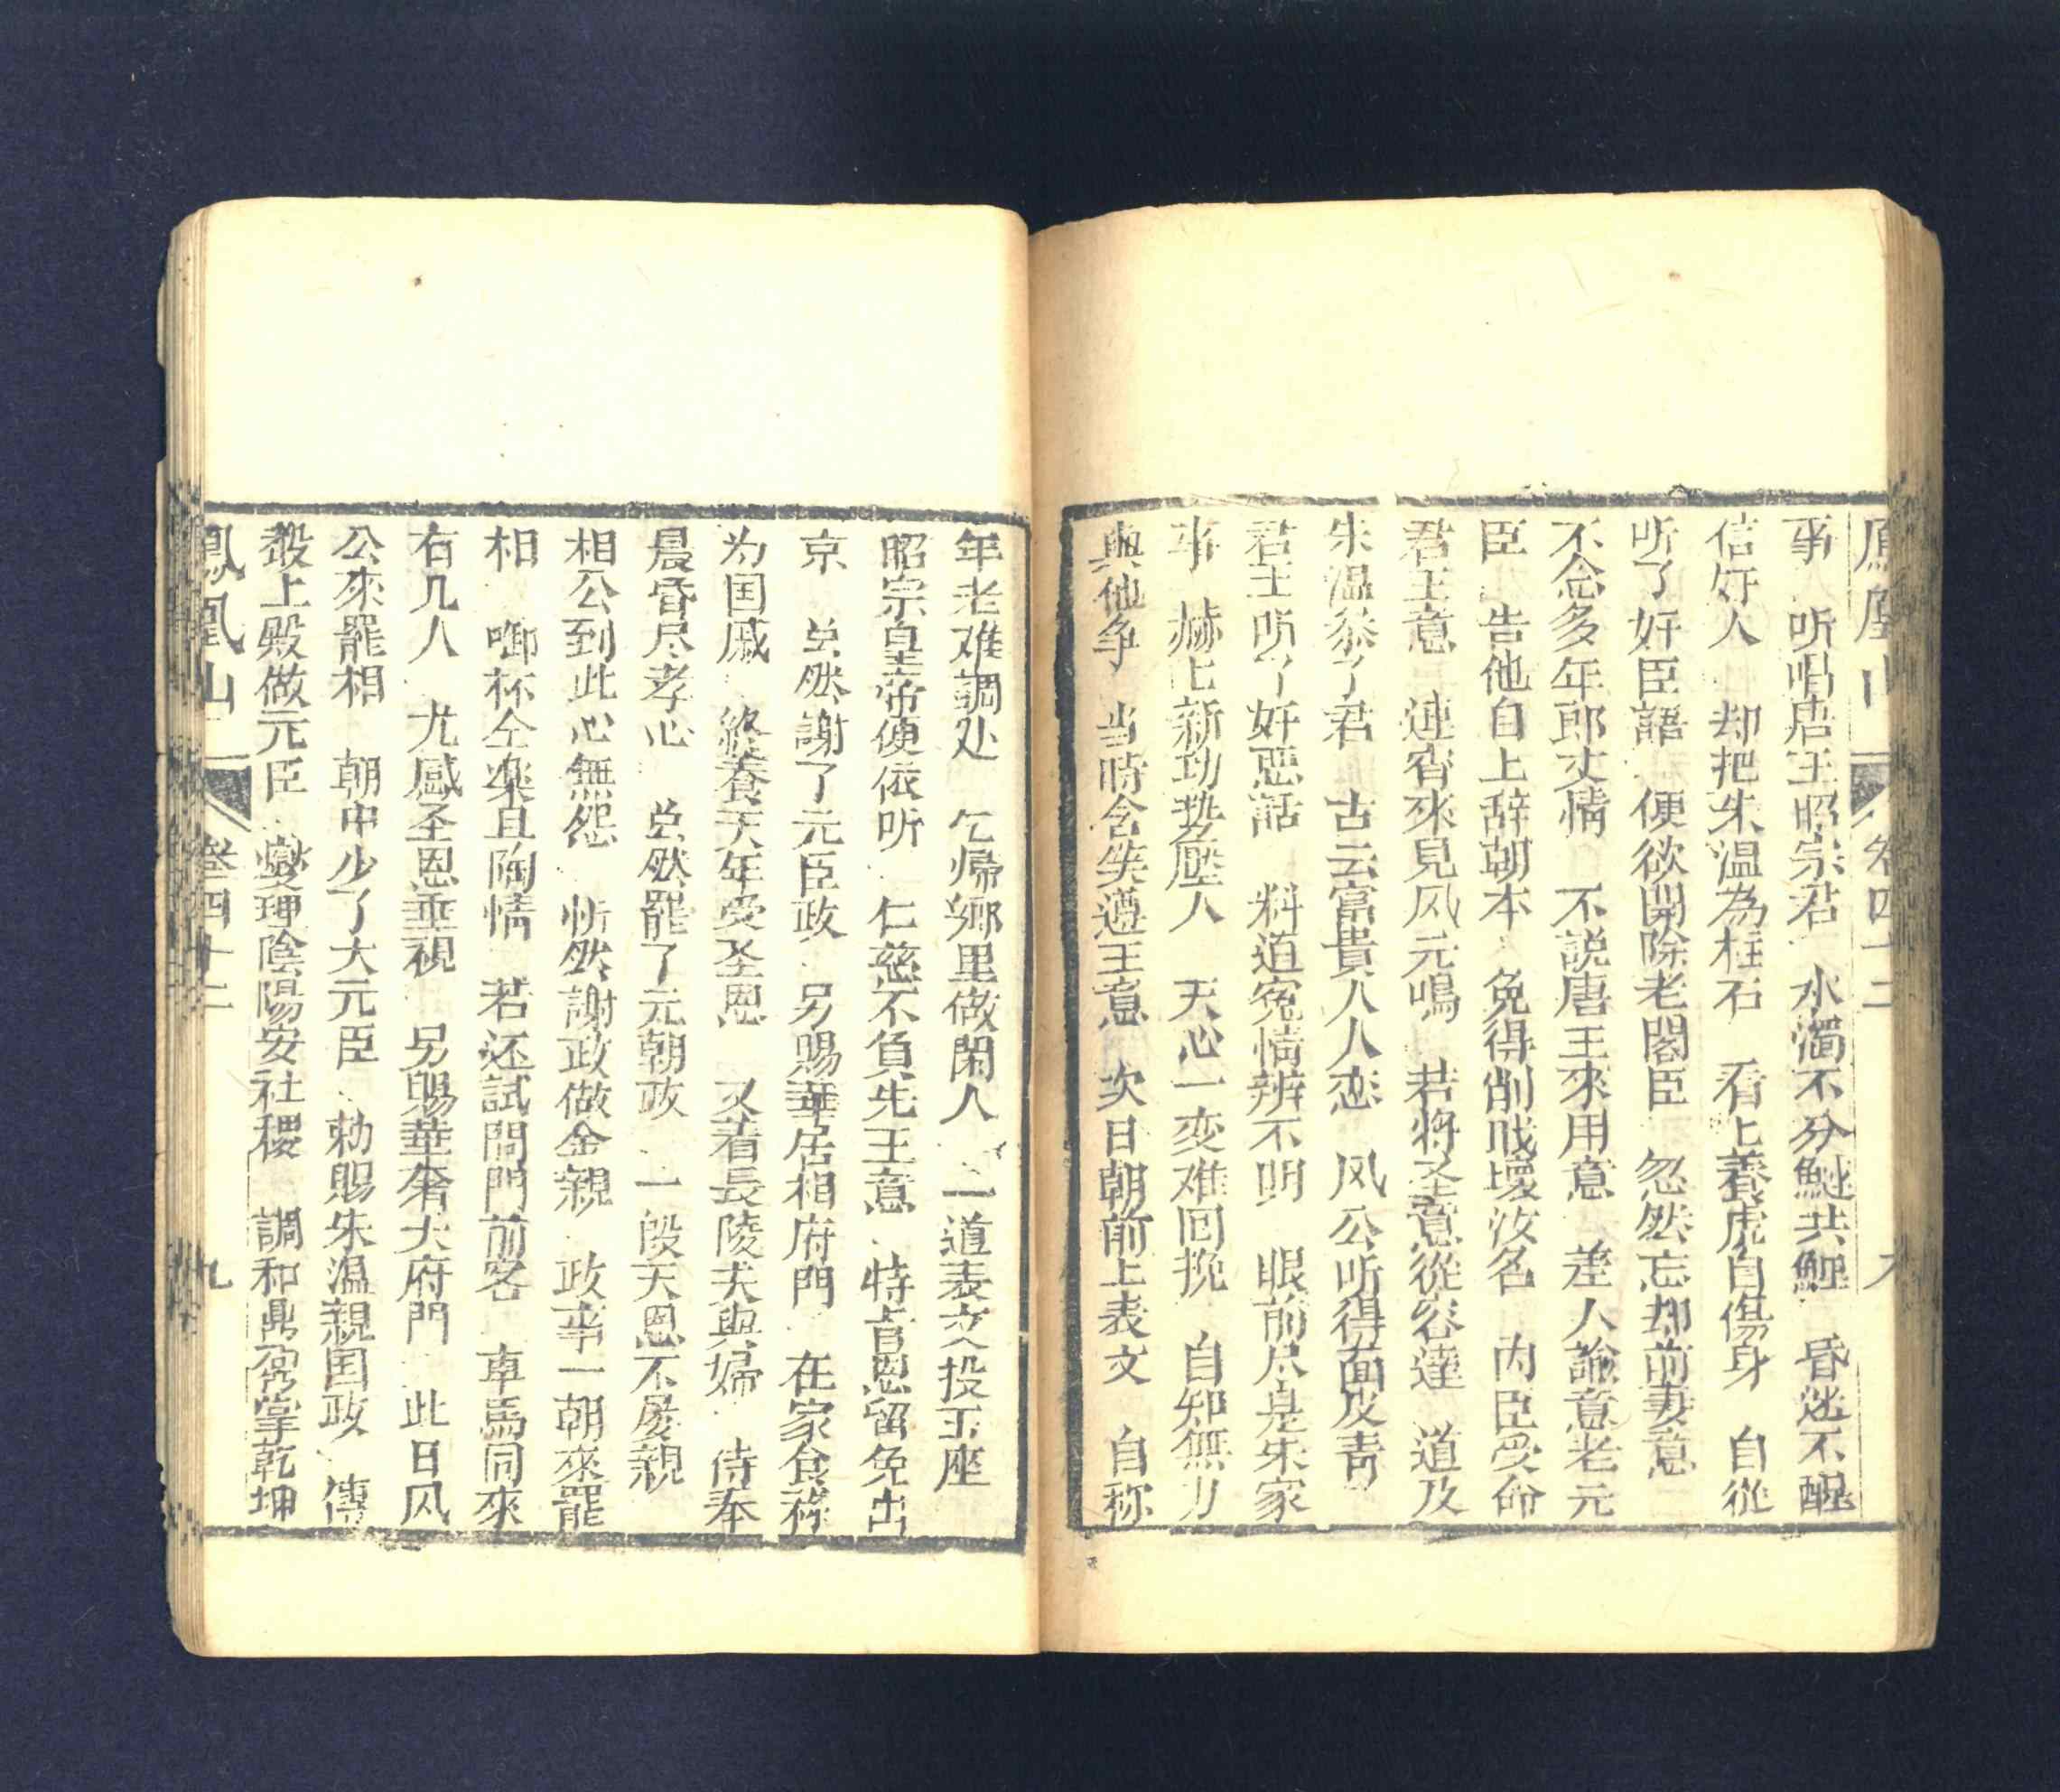 鳳凰山 卷四十二
事 听唱唐王昭宗君 水濁不分鰱共鯉 昏迷不醒
信奸人 却把朱温為柱石 看上養虎自傷身 自從
听了奸臣語 便欲開除老閣臣 忽然忘却前妻意
不念多年郎丈情 不説唐王來用意 差人諭意老元
臣 告他自上辞朝本 免得削职壞汝名 内臣受命
君王意 連宵來見风元鳴 若将圣意從容達 道及
朱温叅了君 古云富貴人人恋 风公听得面皮青
君王听了奸惡話 料道寃情辨不明 眼前尽是朱家
事 赫匕新功势壓人 天心一变难囘挽 自知無力
與他争 当時含笑遵王意 次日朝前上表文 自称
年老难調处 乞歸鄉里做閑人 一道表文投玉座
昭宗皇帝便依听 仁慈不負先王意 特旨恩留免出
京 虽然謝了元臣政 另賜華居相府門 在家食祿
为国戚 終養天年受圣恩 又着長陵夫與婦 侍奉
晨昏尽孝心 虽然罷了元朝政 一段天恩不废親
相公到此心無怨 忻然謝政做金親 政事一朝來罷
相 啣杯仝樂且陶情 若还試問門前客 車馬同來
有几人 尤感圣恩垂視 另賜華奢大府門 此日风
公來罷相 朝中少了大元臣 勅賜朱温親国政 傳
殺上殿做元臣 燮理陰陽安社稷 調和鼎鼐掌乾坤
鳳凰山 卷四十二 九